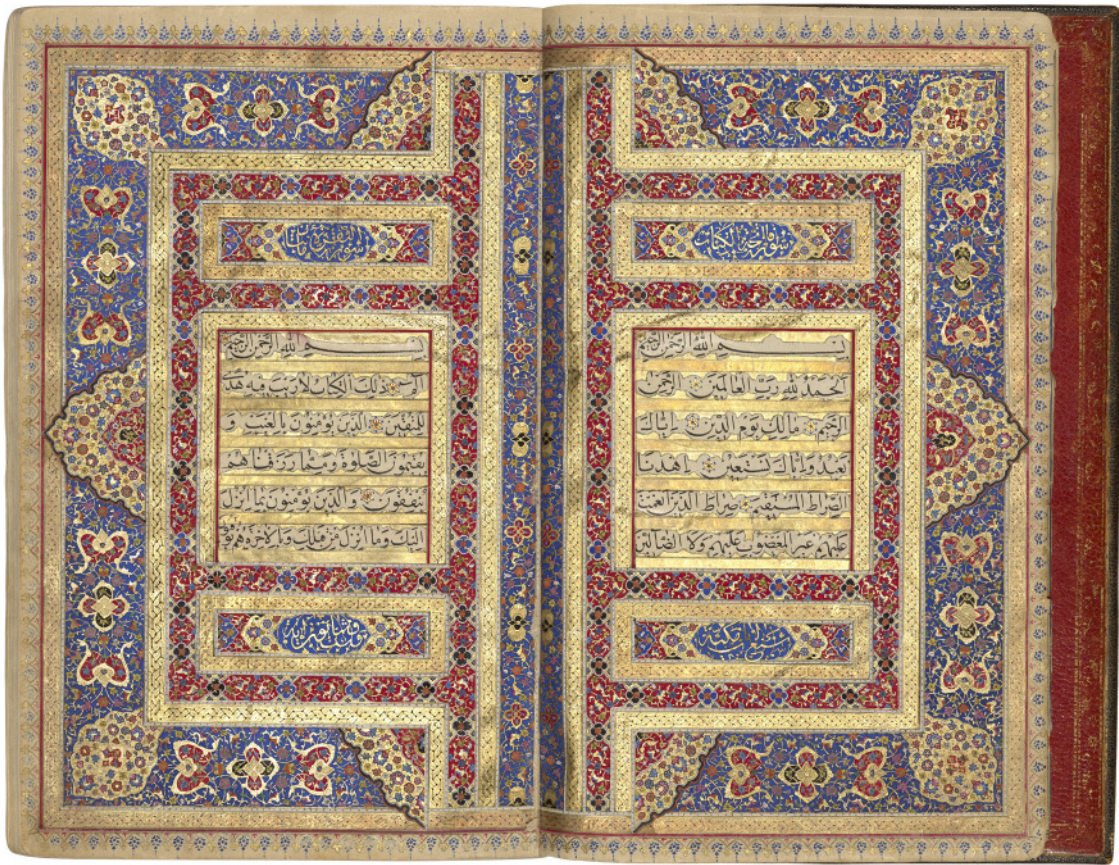 سورة فاتحة الكتاب
بسم الله الرحمن الرحيم
الحمد لله رب العالمين الرحمن
الرحيم مالك يوم الدين اياك
نعبد واياك نستعين اهدنا
الصراط المستقيم صراط الذين انعمت
عليهم غير المغضوب عليهم ولا الضالين
سبع مكية
سورة البقرة
بسم الله الرحمن الرحيم
الم ذلك الكتاب لا ريب فيه هدى
للمتقين الذين يؤمنون بالغيب و
يقيمون الصلوة ومما رزقناهم
ينفقون والذين يؤمنون بما انزل
اليك وما انزل من قبلك وبالاخرة هم